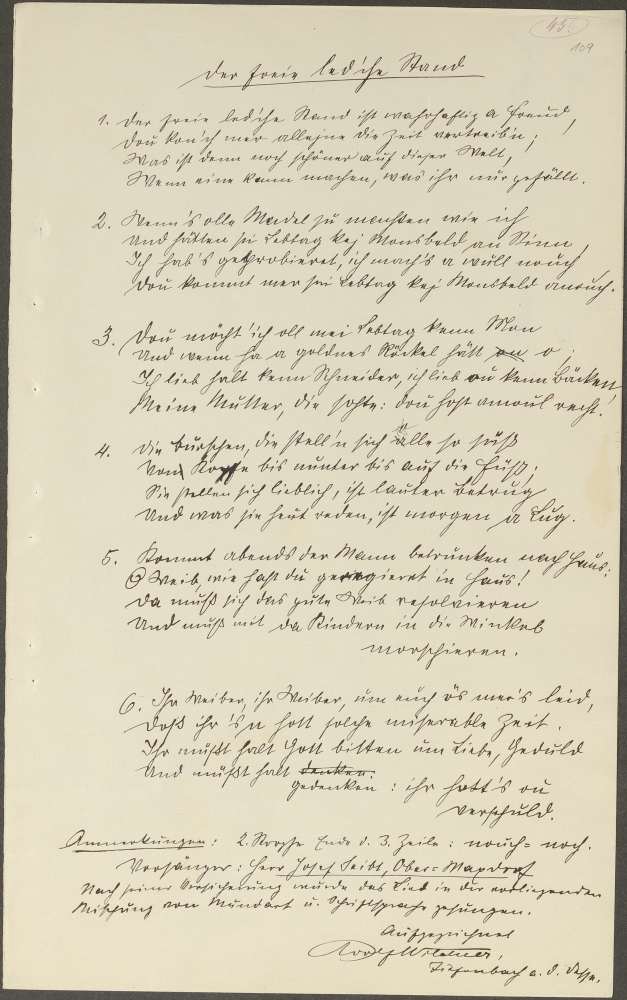 45.
109
Der freie led'che Stand
1. Der freie led'che Stand ist wahrhaftig a Freud,
Dou kon'ch mer allejne die Zeit vertreib'n;
Was ist denn noch schöner auf dieser Welt,
Wenn eine kann machen, was ihr nur gefällt.
2. Wenn's olle Madel su machten wie ich
Und hätten sei Lebtag kej Monsbeld an Sinn,
Ich hab's geprobieret, ich mach's a wull nouch
Dou kommt mer sei Lebtag kej Monsbeld anouch.
3. Dou möcht' ich oll mei Lebtag kenn Mon
Und wenn ha a goldnes Röckel hätt o;
Ich lieb halt kenn Schneider, ich lieb ou kenn Bäcken,
Meine Mutter, die sohte: dou host amoul recht.
4. Die Burschen, die stell'n sich alle so süß
Vom Kopfe bis nunter bis auf die Füß;
Sie stellen sich lieblich, ist lauter Betrug
Und was sie heut reden, ist morgen a Lug.
5. Kommt abends der Mann betrunken nach Haus:
O Weib, wie hast du geregieret in Haus!
Da muß sich das gute Weib resolvieren
Und muß mit da Kindern in die Winkel
morschieren.
6. Ihr Weiber, ihr Weiber, um euch ös mer's leid,
Doß ihr 's a hott solche miserable Zeit.
Ihr müßt halt Gott bitten um Liebe, Geduld
Und müßt halt denken:
gedenken: ihr hott's ou
verschuld.
Anmerkungen: 2. Strophe Ende d. 3. Zeile: nouch = noch.
Vorsänger: Herr Josef Seibt, Ober-Maxdorf
Nach seiner Versicherung wurde das Lied in der vorliegenden
Mischung von Mundart u. Schriftsprache gesungen.
Aufgezeichnet
Adolf Wildner,
Tiefenbach a. d. Desse.